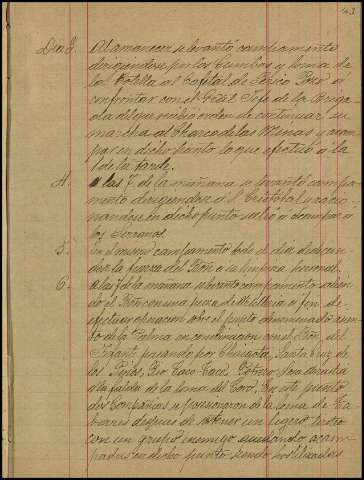 Dia 3. Al amanecer se levantó campamento
dirigiendose por los Cumbos y loma de
la Botella al Cafetal de Perico Pozo á
confrontar con el Gral Jefe de la Briga
da del que recibió orden de continuar su
marcha al Charco de las Minas y acam
par en dicho punto lo que efectuó á la
1 de la tarde.
4. A las 7 de la mañana se levantó campa
mento dirigiendose á S. Cristobal y racio
nandose en dicho punto salió á acampar á
los Serranos.
5. En el mismo campamento todo el dia dedican
do la fuerza del Bón á su limpieza personal.
6. á las 7 de la mañana se levantó campamento salien
do el Bón con una pieza de Artilleria á fin de
efectuar operacion sobre el punto denominado asien
to de la Palma en combinacion con el Bón del
Infante pasando por Santa Cruz de
los Pinos,
á la falda de la loma del Toro. En este punto
dos Compañias se posesionaron de la loma de
despues de sostener un ligero tiroteo
con un grupo enemigo quedando acam
pados en dicho punto siendo hostilizados